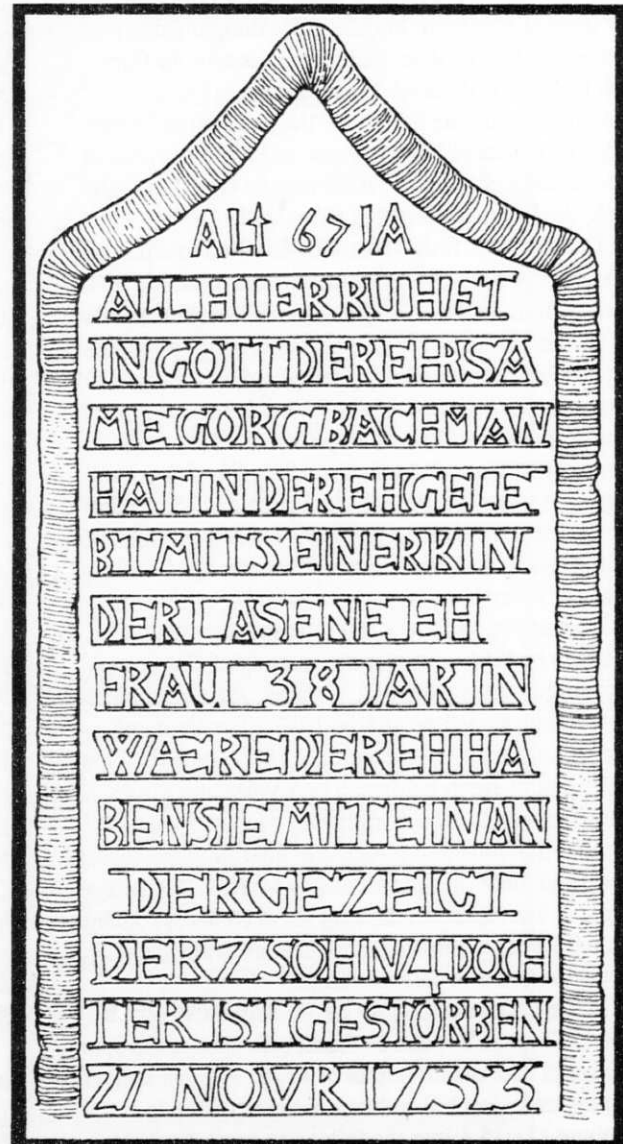 ALt 67 JA
ALLHIER RUHET
IN GOTT DER EHRSA
ME GORG BACHMAN
HAT IN DER EH GELE
BT MIT SEINER KIN
DER LASENE EH
FRAU 38 JAR IN
WÆRE DER EH HA
BEN SIE MIT EINAN
DER GEZEIGT
DER 7 SOHN 4 DOCH
TER IST GESTORBEN
27 NOVR 1753